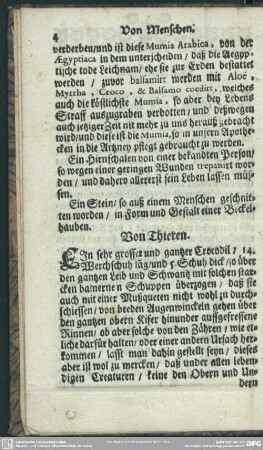 4
Von Menschen.
verderben/und ist diese Mumia Arabica, von der
Ægyptiaca in dem unterscheiden/ daß die Aegyp-
tische tode Leichnam/ ehe sie zur Erden bestattet
werden / zuvor balsamirt werden mit Aloë,
Myrrha, Croco, & Balsamo coedirt, welches
auch die köstlichste Mumia, so aber bey Lebens
Straff außzugraben verbotten / und deßwegen
auch jetziger Zeit nit mehr zu uns herauß gebracht
wird/und diese ist die Mumia, so in unsern Apothe-
cken in die Artzney pflegt gebraucht zu werden.
Ein Hirnschalen von einer bekandten Person/
so wegen einer geringen Wunden trepanirt wor-
den / und dahero allererst sein Leben lassen müs-
sen.
Ein Stein/ so auß einem Menschen geschnit-
ten worden / in Form und Gestalt einer Bickel-
hauben.
Von Thieren.
EIn sehr grosser und gantzer Crocodil / 14.
Werchschuh läg/und 5. Schuh dick/so über
den gantzen Leib und Schwantz mit solchen star-
cken Schuppen überzogen / daß sie
auch mit einer Mußqueten nicht wohl zu durch-
schiessen / von beeden Augenwinckeln gehen über
den gantzen obern Kifer hinunder auffgefressene
Rinnen/ ob aber solche von den Zähren / wie et-
liche darfür halten/ oder einer andern Ursach her-
kommen / lasst man dahin gestellt seyn / dieses
aber ist wol zu mercken/ daß under allen leben-
digen Creaturen / keine den Obern und Un-
dern